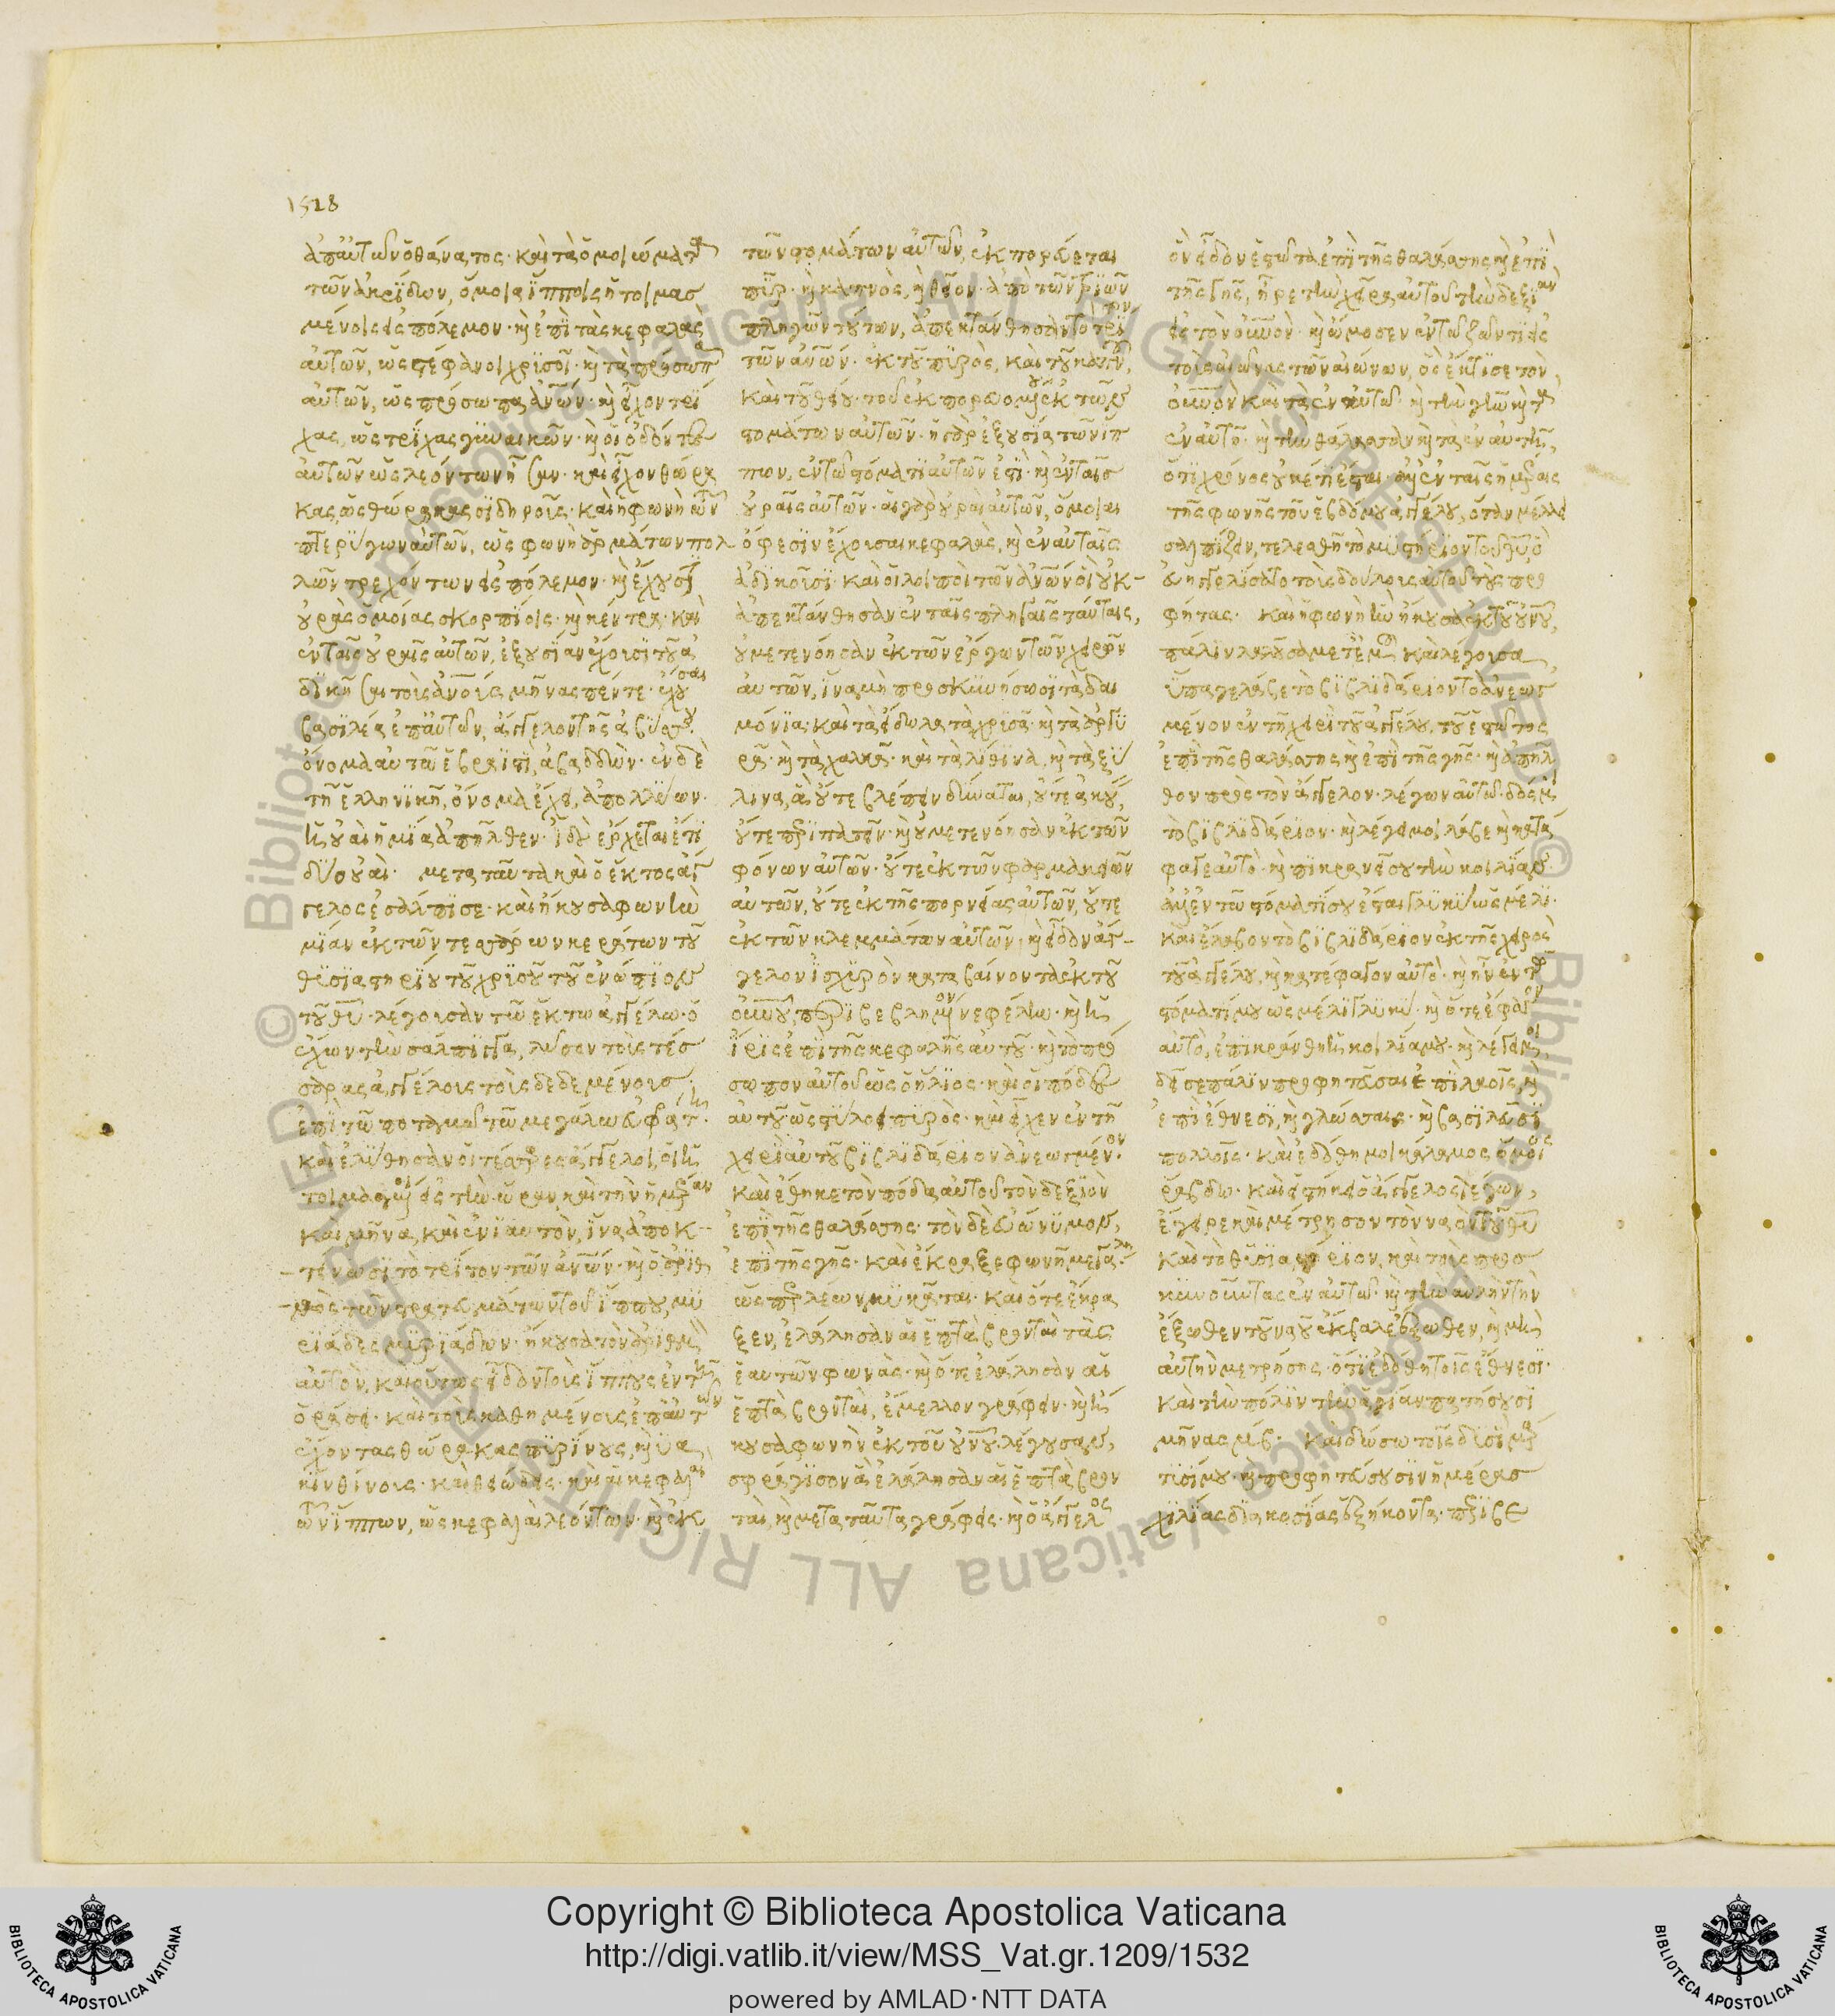 1528
ἀπ' αὐτῶν ὁ θάνατος· καὶ τὰ ὁμοιώματα
τῶν ἀκρίδων, ὅμοια ἵπποις ἡτοιμασ
μένοις εἰς πόλεμον· καὶ ἐπὶ τὰς κεφαλὰς
αὐτῶν, ὡς στέφανοι χρυσοῖ· καὶ τὰ πρόσωπα
αὐτῶν, ὡς πρόσωπα ἀνῶν· καὶ εἶχον τρί
χας, ὡς τρίχας γυναικῶν· καὶ οἱ ὀδόντες
αὐτῶν ὡς λεόντων ἦσαν· καὶ εἶχον θώρα
κας, ὡς θώρακας σιδηροῦς· καὶ ἡ φωνὴ τῶν
πτερύγων αὐτῶν, ὡς φωνὴ ἁρμάτων πολ
λῶν τρεχόντων εἰς πόλεμον· καὶ ἔχουσι
οὐρὰς ὁμοίας σκορπίοις· καὶ κέντρα· καὶ
ἐν ταῖς οὐραῖς αὐτῶν, ἐξουσίαν ἔχουσι τοῦ ἀ
δικῆσαι τοὺς ἀνους μῆνας πέντε· ἔχουσαι
βασιλέα ἐπ' αὐτῶν, ἄγγελον τῆς ἀβύσσου·
ὄνομα αὐτῷ ἑβραϊστὶ, ἀβαδδὼν· ἐν δὲ
τῇ ἑλληνικῇ, ὄνομα ἔχει, ἀπολλύων·
ἡ οὐαὶ ἡ μία ἀπῆλθεν· ἰδοὺ ἔρχεται ἔτι
δύο οὐαὶ· μετὰ ταῦτα καὶ ὁ ἕκτος ἄγ
γελος ἐσάλπισε· καὶ ἤκουσα φωνὴν
μίαν ἐκ τῶν τεσσάρων κεράτων τοῦ
θυσιαστηρίου τοῦ χρυσοῦ τοῦ ἐνώπιον
τοῦ θυ· λέγουσαν τῷ ἕκτῳ ἀγγέλῳ· ὁ
ἔχων τὴν σάλπιγγα, λῦσον τοὺς τέσ
σαρας ἀγγέλους τοὺς δεδεμένους
ἐπὶ τῷ ποταμῷ τῷ μεγάλῳ εὐφράτῃ·
καὶ ἐλύθησαν οἱ τέσσαρες ἄγγελοι, οἱ ἡ
τοιμασμένοι εἰς τὴν ὥραν καὶ τὴν ἡμέραν
καὶ μῆνα, καὶ ἐνιαυτὸν, ἵνα ἀποκ
τένωσι τὸ τρίτον τῶν ἀνῶν· καὶ ὁ ἀριθ
μὸς τῶν στρατευμάτων τοῦ ἵππου, μυ
ριάδες μυριάδων· ἤκουσα τὸν ἀριθμὸν
αὐτῶν, καὶ οὕτως εἶδον τοὺς ἵππους ἐν τῇ
ὁράσει· καὶ τοὺς καθημένους ἐπ' αὐτῶν
ἔχοντας θώρακας πυρίνους, καὶ ὑα
κινθίνους· καὶ θειώδεις· καὶ αἱ κεφαλαὶ
τῶν ἵππων, ὡς κεφαλαὶ λεόντων· καὶ ἐκ
τῶν στομάτων αὐτῶν, ἐκπορεύεται
πῦρ· καὶ καπνὸς, καὶ θεῖον· ἀπὸ τῶν τριῶν
πληγῶν τούτων, ἀπεκτάνθησαν τὸ τρίτον
τῶν ἀνῶν· ἐκ τοῦ πυρὸς, καὶ τοῦ καπνοῦ,
καὶ τοῦ θείου· τοῦ ἐκπορευομένου ἐκ τῶν
στομάτων αὐτῶν· ἡ γὰρ ἐξουσία τῶν ἵπ
πων, ἐν τῷ στόματι αὐτῶν ἐστὶ· καὶ ἐν ταῖς
οὐραῖς αὐτῶν· αἱ γὰρ οὐραὶ αὐτῶν, ὅμοιαι
ὄφεσιν ἔχουσαι κεφαλὰς, καὶ ἐν αὐταῖς
ἀδικοῦσι· καὶ οἱ λοιποὶ τῶν ἀνῶν οἳ οὐκ
ἀπεκτάνθησαν ἐν ταῖς πληγαῖς ταύταις,
οὐ μετενόησαν ἐκ τῶν ἔργων τῶν χειρῶν
αὐτῶν, ἵνα μὴ προσκυνήσωσι τὰ δαι
μόνια· καὶ τὰ εἴδωλα τὰ χρυσᾶ· καὶ τὰ ἀργυ
ρᾶ· καὶ τὰ χαλκᾶ· καὶ τὰ λίθινα, καὶ τὰ ξύ
λινα, ἃ οὔτε βλέπειν δύναται, οὔτε ἀκού,
οὔτε περιπατεῖν· καὶ οὐ μετενόησαν ἐκ τῶν
φόνων αὐτῶν· οὔτε ἐκ τῶν φαρμακειῶν
αὐτῶν, οὔτε ἐκ τῆς πορνείας αὐτῶν, οὔτε
ἐκ τῶν κλεμμάτων αὐτῶν· καὶ εἶδον ἄγ
γελον ἰσχυρὸν καταβαίνοντα ἐκ τοῦ
οὐνου, περιβεβλημένον νεφέλην· καὶ ἡ
ἶρις ἐπὶ τῆς κεφαλῆς αὐτοῦ· καὶ τὸ πρό
σωπον αὐτοῦ ὡς ὁ ἥλιος· καὶ οἱ πόδες
αὐτοῦ ὡς στύλοι πυρὸς· καὶ εἶχεν ἐν τῇ
χειρὶ αὐτοῦ βιβλιδάριον ἀνεωγμένον·
καὶ ἔθηκε τὸν πόδα αὐτοῦ τὸν δεξιὸν
ἐπὶ τῆς θαλάσσης· τὸν δὲ εὐώνυμον,
ἐπὶ τῆς γῆς· καὶ ἔκραξε φωνῇ μεγάλῃ
ὥσπερ λέων μυκᾶται· καὶ ὅτε ἔκρα
ξεν, ἐλάλησαν αἱ ἑπτὰ βρονταὶ τὰς
ἑαυτῶν φωνὰς· καὶ ὅτε ἐλάλησαν αἱ
ἑπτὰ βρονταὶ, ἔμελλον γράφειν· καὶ ἤ
κουσα φωνὴν ἐκ τοῦ οὐνου λέγουσαν,
σφράγισον ἃ ἐλάλησαν αἱ ἑπτὰ βρον
ταὶ, καὶ μετὰ ταῦτα γράφεις· καὶ ὁ ἄγγελος
ὃν εἶδον ἑστῶτα ἐπὶ τῆς θαλάσσης καὶ ἐπὶ
τῆς γῆς, ἦρε τὴν χεῖρα αὐτοῦ τὴν δεξιὰν
εἰς τὸν οὐνον· καὶ ὤμοσεν ἐν τῷ ζῶντι εἰς
τοὺς αἰῶνας τῶν αἰώνων, ὃς ἔκτισε τὸν
οὐνον καὶ τὰ ἐν αὐτῷ· καὶ τὴν γῆν καὶ τὰ
ἐν αὐτῇ· καὶ τὴν θάλασσαν καὶ τὰ ἐν αὐτῇ,
ὅτι χρόνος οὐκέτι ἔσται· ἀλλ' ἐν ταῖς ἡμέραις
τῆς φωνῆς τοῦ ἑβδόμου ἀγγέλου, ὅταν μέλλῃ
σαλπίζειν, τελεσθῇ τὸ μυστήριον τοῦ θυ, ὃ
εὐηγγελίσατο τοὺς δούλους αὐτοῦ τοὺς προ
φήτας· καὶ ἡ φωνὴ ἣν ἤκουσα ἐκ τοῦ οὐνου,
πάλιν λαλοῦσα μετ' ἐμοῦ καὶ λέγουσα,
ὕπαγε λάβε τὸ βιβλιδάριον τὸ ἀνεωγ
μένον ἐν τῇ χειρὶ τοῦ ἀγγέλου, τοῦ ἑστῶτος
ἐπὶ τῆς θαλάσσης καὶ ἐπὶ τῆς γῆς· καὶ ἀπῆλ
θον πρὸς τὸν ἄγγελον· λέγων αὐτῷ· δός μοι
τὸ βιβλιδάριον· καὶ λέγει μοι λάβε καὶ κατά
φαγε αὐτὸ· καὶ πικρανεῖ σου τὴν κοιλίαν·
ἀλλ' ἐν τῷ στόματί σου ἔσται γλυκὺ ὡς μέλι·
καὶ ἔλαβον τὸ βιβλιδάριον ἐκ τῆς χειρὸς
τοῦ ἀγγέλου, καὶ κατέφαγον αὐτὸ· καὶ ἦν ἐν τῷ
στόματί μου ὡς μέλι γλυκὺ· καὶ ὅτε ἔφαγον
αὐτὸ, ἐπικράνθη ἡ κοιλία μου· καὶ λέγει μοι,
δεῖ σε πάλιν προφητεῦσαι ἐπὶ λαοῖς, καὶ
ἐπὶ ἔθνεσι, καὶ γλώσσαις· καὶ βασιλεῦσι
πολλοῖς· καὶ ἐδόθη μοι κάλαμος ὅμοιος
ῥάβδῳ· καὶ εἱστήκει ὁ ἄγγελος λέγων,
ἔγειρε καὶ μέτρησον τὸν ναὸν τοῦ θυ
καὶ τὸ θυσιαστήριον, καὶ τοὺς προσ
κυνοῦντας ἐν αὐτῷ· καὶ τὴν αὐλὴν τὴν
ἔξωθεν τοῦ ναοῦ ἔκβαλε ἔξωθεν, καὶ μὴ
αὐτὴν μετρήσῃς· ὅτι ἐδόθη τοῖς ἔθνεσι·
καὶ τὴν πόλιν τὴν ἁγίαν πατήσουσι
μῆνας μβ· καὶ δώσω τοῖς δυσὶ μάρ
τυσί μου· καὶ προφητεύσουσιν ἡμέρας
χιλίας διακοσίας ἑξήκοντα· περιβε
Copyright © Biblioteca Apostolica Vaticana
http://digi.vatlib.it/view/MSS_Vat.gr.1209/1532
powered by AMLAD·NTT DATA
BIBLIOTECA APOSTOLICA VATICANA
BIBLIOTECA APOSTOLICA VATICANA